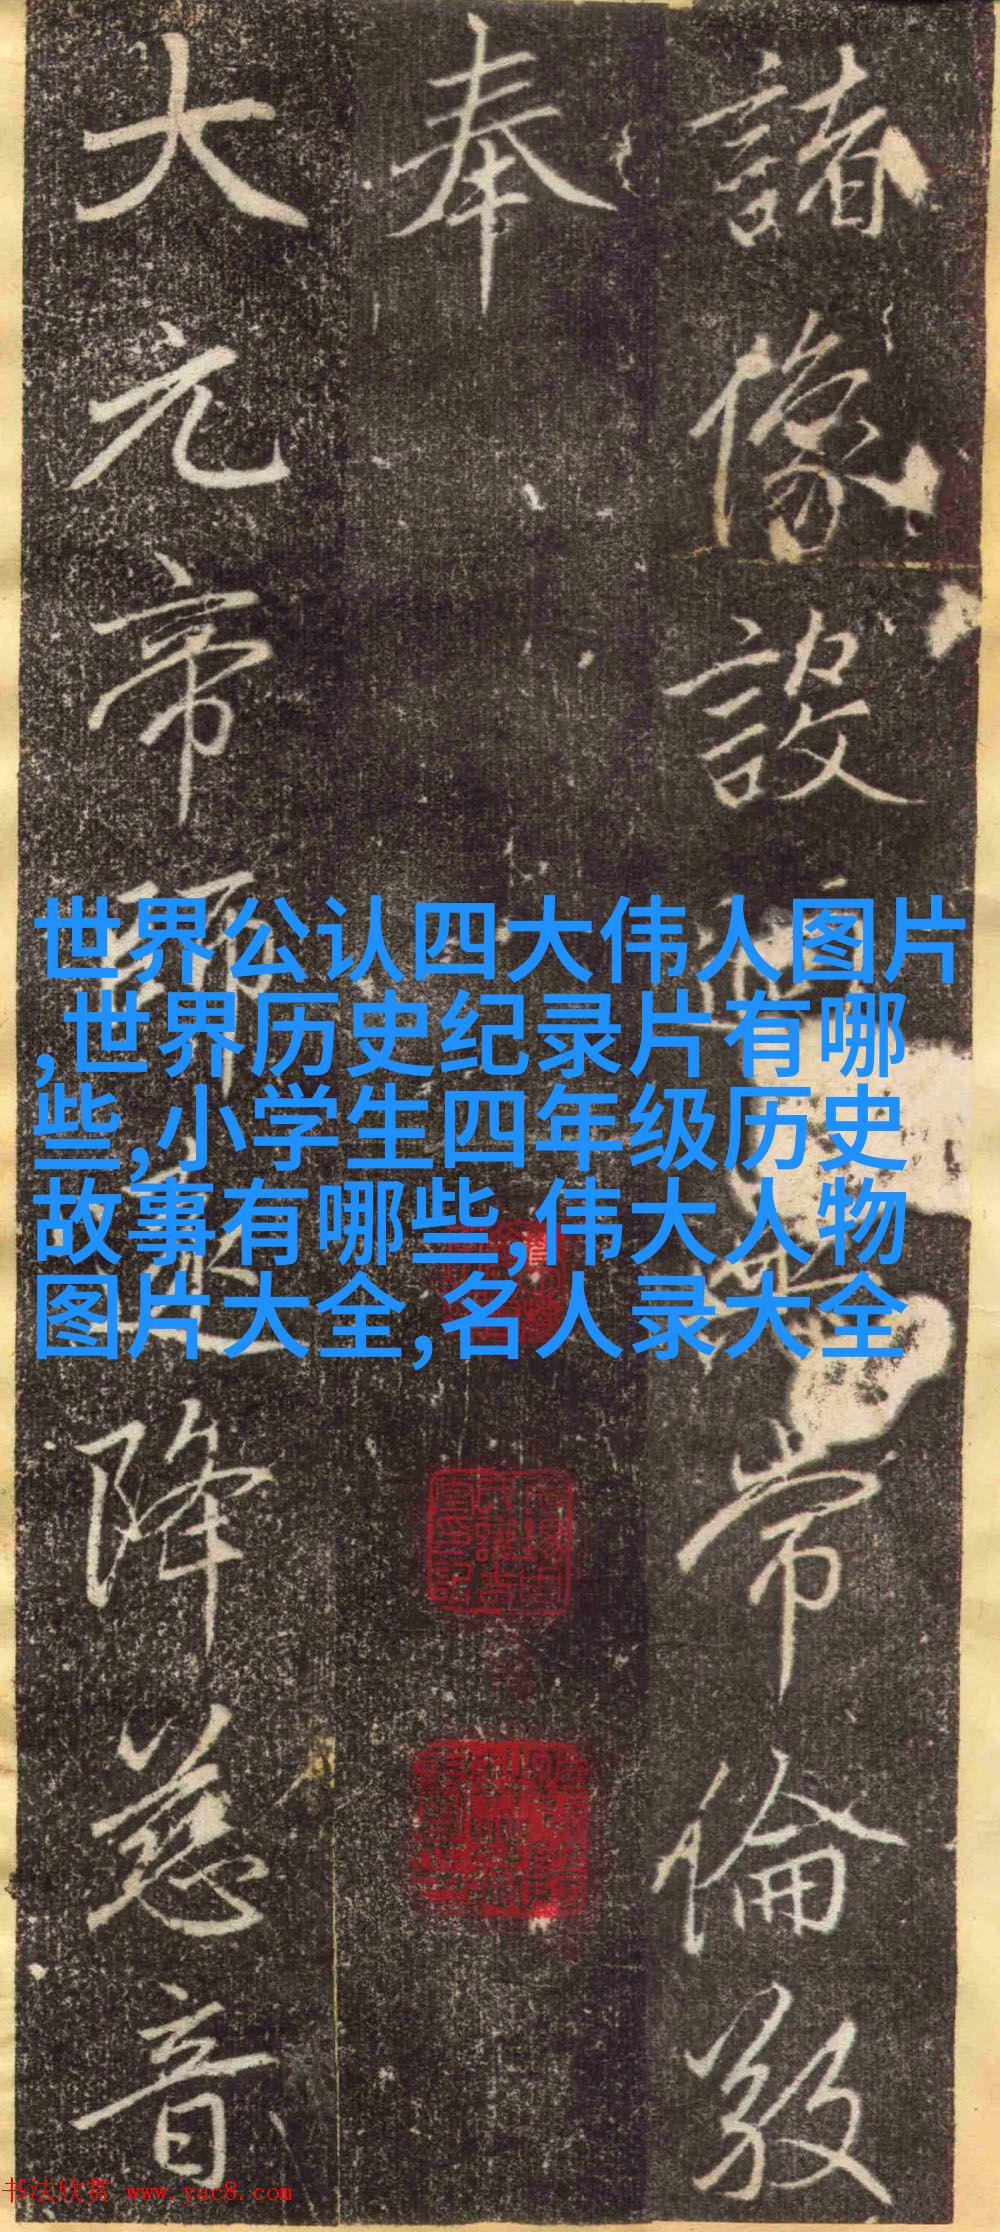 諸像設常倫敎
奉
大元帝師降慈音
世界公认四大伟人图片
,世界历史纪录片有哪
些,小学生四年级历史
故事有哪些,伟大人物
图片大全,名人录大全
书法欣赏 www.yac8.com